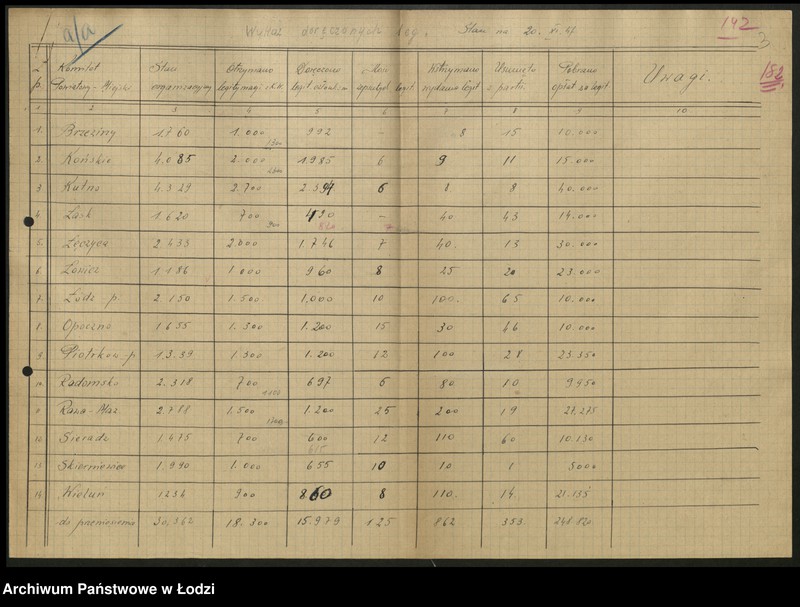 a/a
Wykaz doręczonych leg. Stan na 20. XI 47
142
3
182
L. p. Komitet Powiatowy-Miejski Stan organizacyjny Otrzymano legitymacji z K.K. Doręczono legit. Ilość legit. Wstrzymano wydanie legit Usunięto z partii Pobrano opłat za legit Uwagi.
1 2 3 4 5 6 7 8 9 10
1. Brzeziny 1.760 1.000 992 – 8 15 10.000
1300
2. Końskie 4.085 2.000 1.985 6 9 11 15.000
3 Kutno 4.329 2.700 2.594 6 8 8 40.000
4. Łask 1.620 700 420 – 40 43 14.000
900 820 7
5. Łęczyca 2.433 2.000 1.746 7 40. 13 30.000
6. Łowicz 1.186 1.000 960 8 25 20 23.000
7. Łódź p. 2.150 1.500 1.000 10 100. 65 10.000
8. Opoczno 1.655 1.300 1.200 15 30 46 10.000
9. Piotrków p. 1.339 1.300 1.200 12 100 28 23.350
10. Radomsko 2.318 700 697 6 80 10 9950
11. Rawa-Maz. 2.788 1.500 1.200 25 200 19 27.275
1700
12. Sieradz 1.475 700 600 12 110 60 10.130
655
13. Skierniewice 1.990 1.000 655 10 10 1 5000
14. Wieluń 1234 900 860 8 110. 14. 21.135
do przeniesienia 30.362 18.300 15.979 125 862 353. 248.820
Archiwum Państwowe w Łodzi